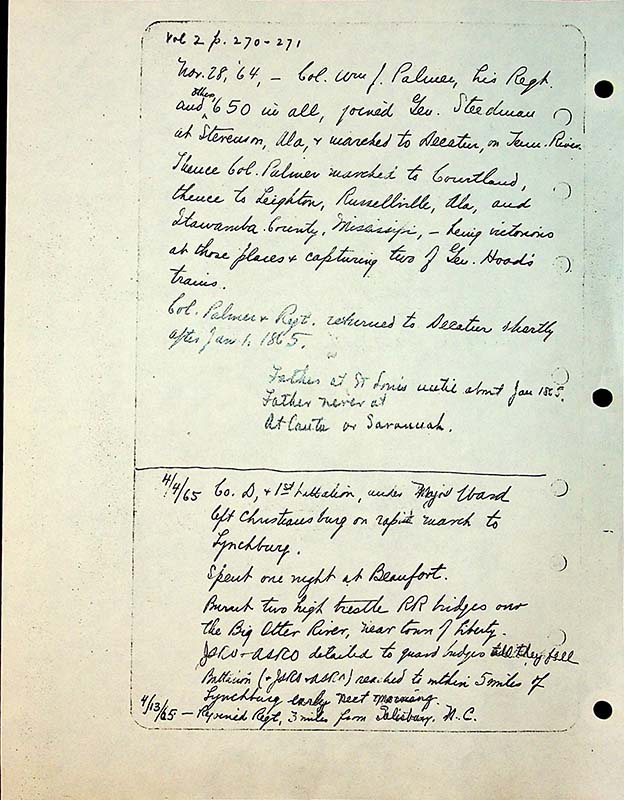 Vol 2 p. 270-271
Nov. 28, '64, - Col. Wm J. Palmer, his Regt.
and others 650 in all, joined Gen. Steedman
at Stevenson, Ala, & marched to Decatur, on Tenn. River.
Thence Col. Palmer marched to Courtland,
thence to Leighton, Russellville, Ala, and
Itawamba County, Mississippi, - being victorious
at those places & capturing two of Gen. Hood's
trains.
Col. Palmer & Regt. returned to Decatur shortly
after Jan 1. 1865.
Father at St Louis until about Jan 1865.
Father never at
Atlanta or Savannah.
4/4/65 Co. D, & 1st battalion, under Major Ward
left Christiansburg on rapid march to
Lynchburg.
Spent one night at Beaufort.
Burnt two high trestle RR bridges over
the Big Otter River, near town of Liberty.
detailed to guard bridges till they fell
Battalion reached to within 5 miles of
Lynchburg early next morning.
4/13/65 - Rejoined Regt, 3 miles from Salisbury. N.C.